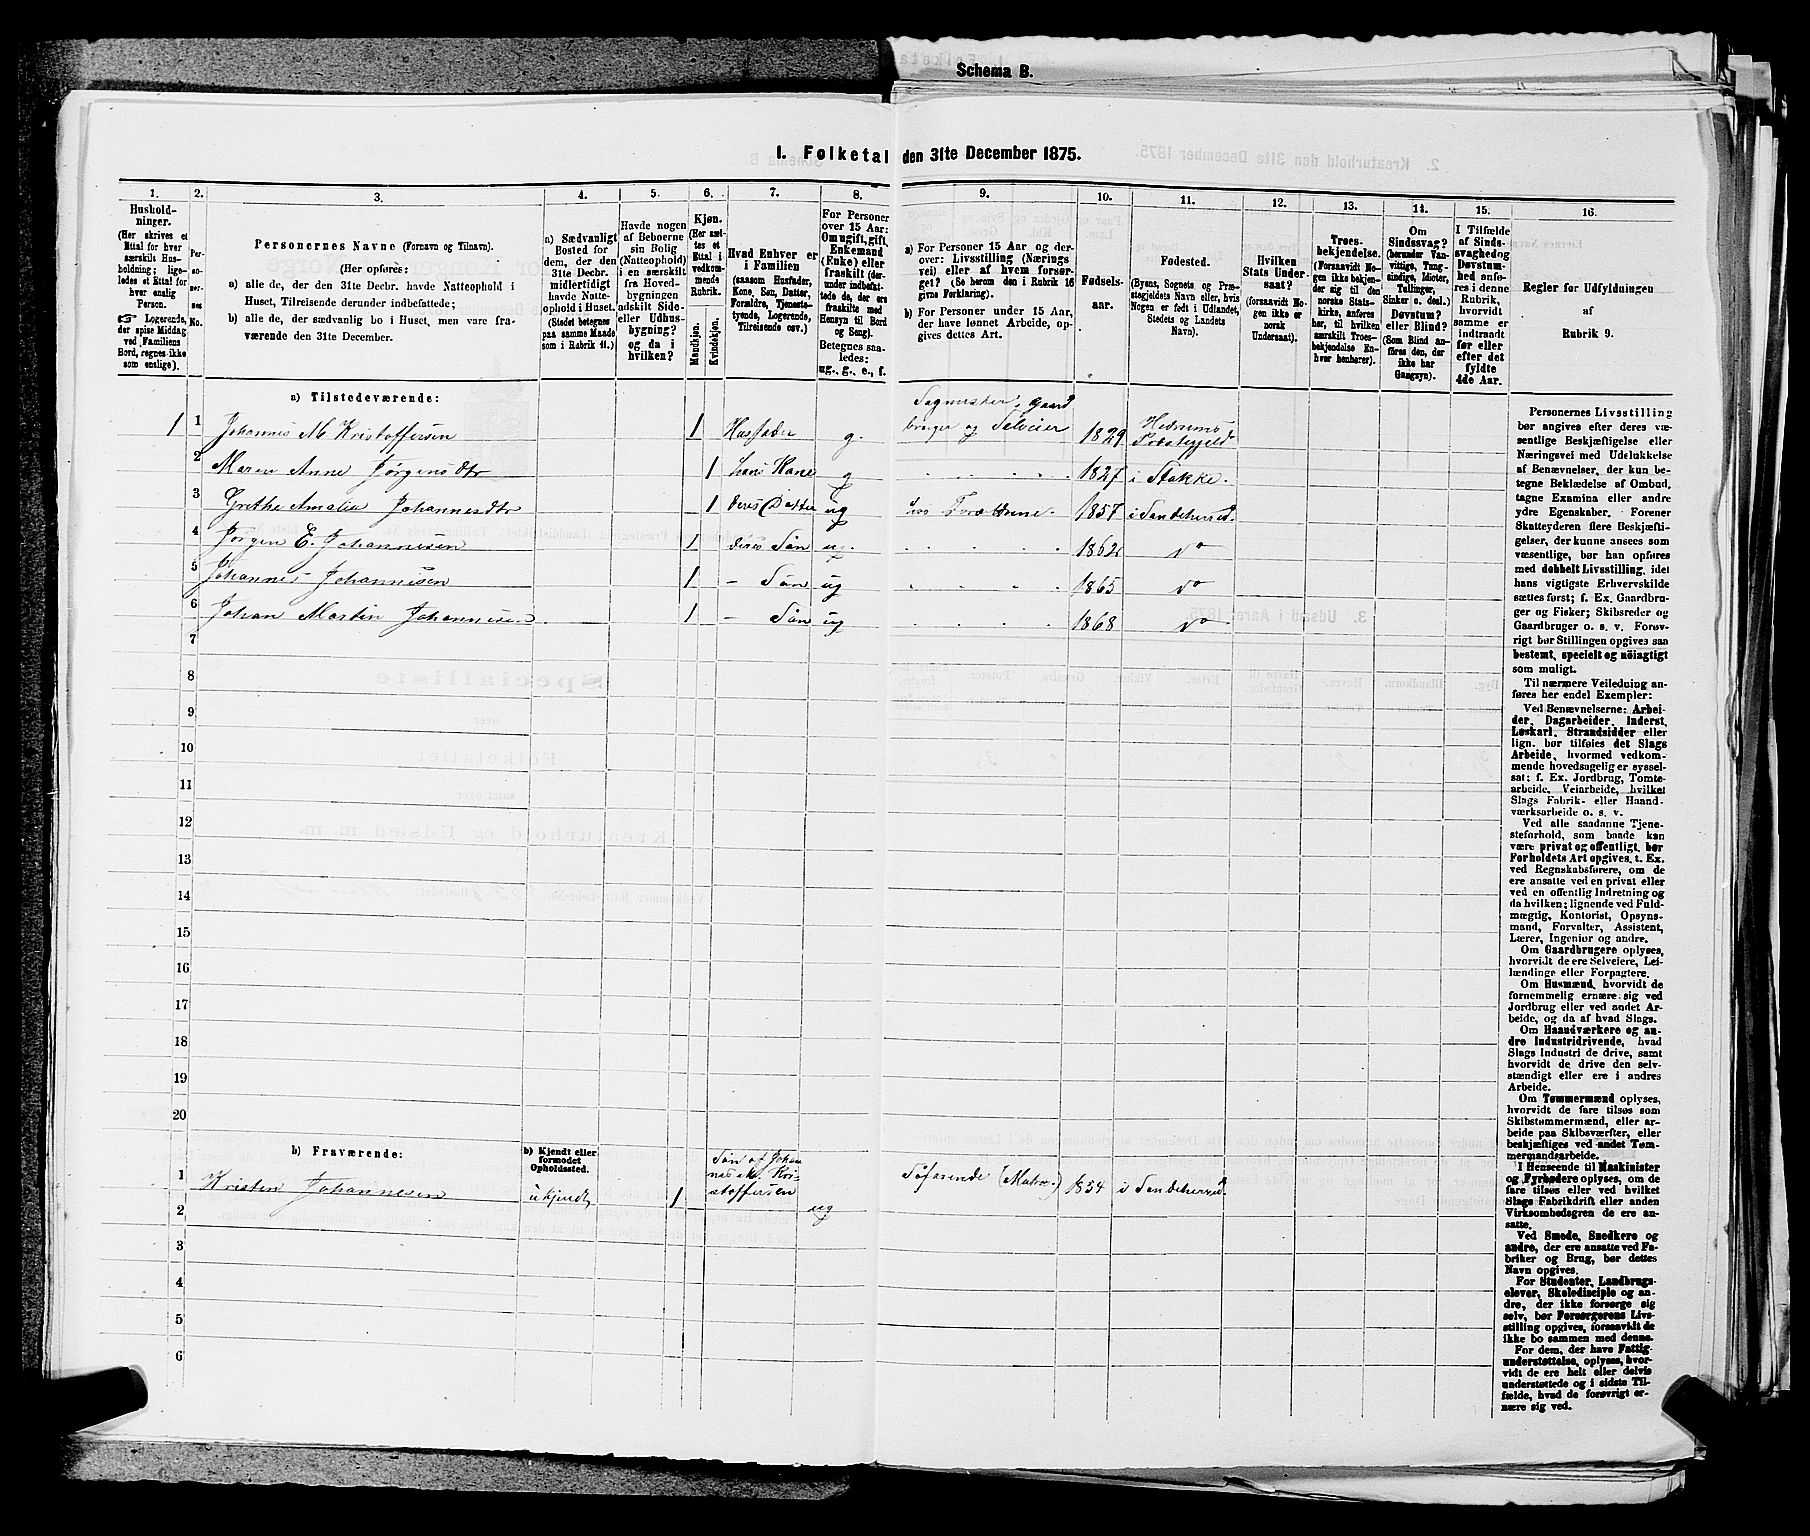 Schema B.
1. Folketal den 31te December 1875.
1. 2. 3. 4. 5. 6. 7. 8. 9. 10. 11. 12. 13. 14. 15. 16.
Hushold-
ninger.
(Her skrives et
Ettal for hver
særskilt Hus-
holdning; lige-
ledes et Ettal for
hver enslig
Person.
☞ Logerende,
der spise Middag
ved Familiens
Bord, regnes ikke
som enslige).
Per-
so-
ner-
nes
No.
Personernes Navne (Fornavn og Tilnavn).
(Her opføres:
a) alle de, der den 31te Decbr. havde Natteophold i
Huset, Tilreisende derunder indbefattede;
b) alle de, der sædvanlig bo i Huset, men vare fra-
værende den 31te December.
a) Sædvanligt
Bosted for
dem, der den
31te Decbr.
midlertidigt
havde Natte-
ophold i Huset.
(Stedet betegnes
paa samme Maade
som i Rubrik 11.)
Havde nogen
af Beboerne
sin Bolig
(Natteophold)
i en særskilt
fra Hoved-
bygningen
adskilt Side-
eller Udhus-
bygning?
og da i
hvilken?
Kjøn.
(Her sæt-
tes et
Ettal i
vedkom-
mende
Rubrik.
Mandkjøn.
Kvindekjøn.
Hvad Enhver er
i Familien
(saasom Husfader,
Kone, Søn, Datter,
Forældre, Tjeneste-
tyende, Logerende,
Tilreisende osv.)
For Personer
over 15 Aar:
Om ugift, gift,
Enkemand
(Enke) eller
fraskilt (der-
under indbefat-
tede de, der ere
fraskilte med
Hensyn til Bord
og Seng).
Betegnes saa-
ledes:
ug., g., e., f.
a) For Personer 15 Aar og der-
over: Livsstilling (Nærings-
vei) eller af hvem forsør-
get? (Se herom den i Rubrik 16
givne Forklaring).
b) For Personer under 15 Aar,
der have lønnet Arbeide, op-
gives dettes Art.
Fødsels-
aar.
Fødested.
(Byens, Sognets og Præ-
stegjeldets Navn eller, hvis
Nogen er født i Udlandet,
Stedets og Landets
Navn).
Hvilken
Stats Under-
saat?
(forsaavidt No-
gen ikke er
norsk
Undersaat).
Troes-
bekjendelse.
(Forsaavidt No-
gen ikke bekjen-
der sig til den
norske Stats-
kirke, anføres
her, til hvilken
særskilt Troes-
bekjendelse En-
hver henhører).
Om
Sindssvag?
(herunder Van-
vittige, Tung-
sindige, Idioter,
Tullinger,
Sinker o. desl.)
Døvstum?
eller Blind?
(Som Blind an-
føres den, der
ikke har
Gangsyn).
I Tilfælde
af Sinds-
svaghed og
Døvstum-
hed anfø-
res i denne
Rubrik,
hvorvidt
samme er
indtraadt
før eller
efter det
fyldte
4de Aar.
Regler for Udfyldningen
af
Rubrik 9.
a) Tilstedeværende:
1 1 Johannes M Kristoffersen 1 Husfader g. Sagmester, Gaard
bruger og Selveier 1829 Hedrums
Præstegjeld
2 Maren Anne Jørgensdtr 1 hans Kone g 1827 i Stokke.
3 Grethe Amalia Johannesdtr 1 deres Datter ug hos Forældrene. 1857 i Sandeherred.
4 Jørgen E. Johannesen 1 deres Søn ug. 1862 do
5 Johannes Johannesen 1 – Søn ug 1865 do
6 Johan Martin Johannesen 1 – Søn ug 1868 do
7
8
9
10
11
12
13
14
15
16
17
18
19
20
b) Fraværende:
b) Kjendt eller
formodet
Opholdssted.
1 Kristen Johannesen ukjendt 1 Søn af Johan
nes M. Kri-
stoffersen ug Søfarende (Matros) 1854 i Sandeherred.
2
3
4
5
6
Personernes Livsstilling
bør angives efter deres væ-
sentlige Beskjæftigelse eller
Næringsvei med Udelukkelse
af Benævnelser, der kun be-
tegne Beklædelse af Ombud,
tagne Examina eller andre
ydre Egenskaber. Forener
Skatteyderen flere Beskjæfti-
gelser, der kunne ansees som
væsentlige, bør han opføres
med dobbelt Livsstilling, idet
hans vigtigste Erhvervskilde
sættes først; f. Ex. Gaardbru-
ger og Fisker; Skibsreder og
Gaardbruger o. s. v. Forøv-
rigt bør Stillingen opgives saa
bestemt, specielt og nöiagtigt
som muligt.
Til nærmere Veiledning an-
føres her endel Exempler:
Ved Benævnelserne: Arbei-
der, Dagarbeider, Inderst,
Løskarl, Strandsidder eller
lign. bør tilføies det Slags
Arbeide, hvormed vedkom-
mende hovedsagelig er syssel-
sat; f. Ex. Jordbrug, Tomte-
arbeide, Veiarbeide, hvilket
Slags Fabrik- eller Haand-
værksarbeide o. s. v.
Ved alle saadanne Tjene-
steforhold, som baade kan
være privat og offentligt, bør
Forholdets Art opgives, t. Ex.
ved Regnskabsførere, om de
ere ansatte ved en privat eller
ved en offentlig Indretning og
da hvilken; lignende ved Fuld-
mægtig, Kontorist, Opsyns-
mand, Forvalter, Assistent,
Lærer, Ingeniør og andre.
Om Gaardbrugere oplyses,
hvorvidt de ere Selveiere, Lei-
lændinge eller Forpagtere.
Om Husmænd, hvorvidt de
fornemmelig ernære sig ved
Jordbrug eller ved andet Ar-
beide, og da af hvad Slags.
Om Haandværkere og an-
dre Industridrivende, hvad
Slags Industri de drive, samt
hvorvidt de drive den selv-
stændigt eller ere i andres
Arbeide.
Om Tømmermænd oplyses,
hvorvidt de fare tilsøs som
Skibstømmermænd, eller ar-
beide paa Skibsværfter, eller
beskjæftiges ved andet Tøm-
mermandsarbeide.
I Henseende til Maskinister
og Fyrbødere oplyses, om de
fare tilsøs eller ved hvilket
Slags Fabrikdrift eller anden
Virksombedsgren de ere an-
satte.
Ved Smede, Snedkere og
andre, der ere ansatte ved Fa-
briker og Brug, bør dettes
Navn opgives.
For Studenter, Landbrugs-
elever, Skoledisciple og an-
dre, der ikke forsørge sig
selv, bør Forsørgerens Livs-
stilling opgives, forsaavidt de
ikke bo sammen med denne.
For dem, der have Fattig-
understøttelse, oplyses, hvor-
vidt de ere helt eller delvis
understøttede og i sidste Til-
fælde, hvad de forøvrigt er-
nære sig ved.